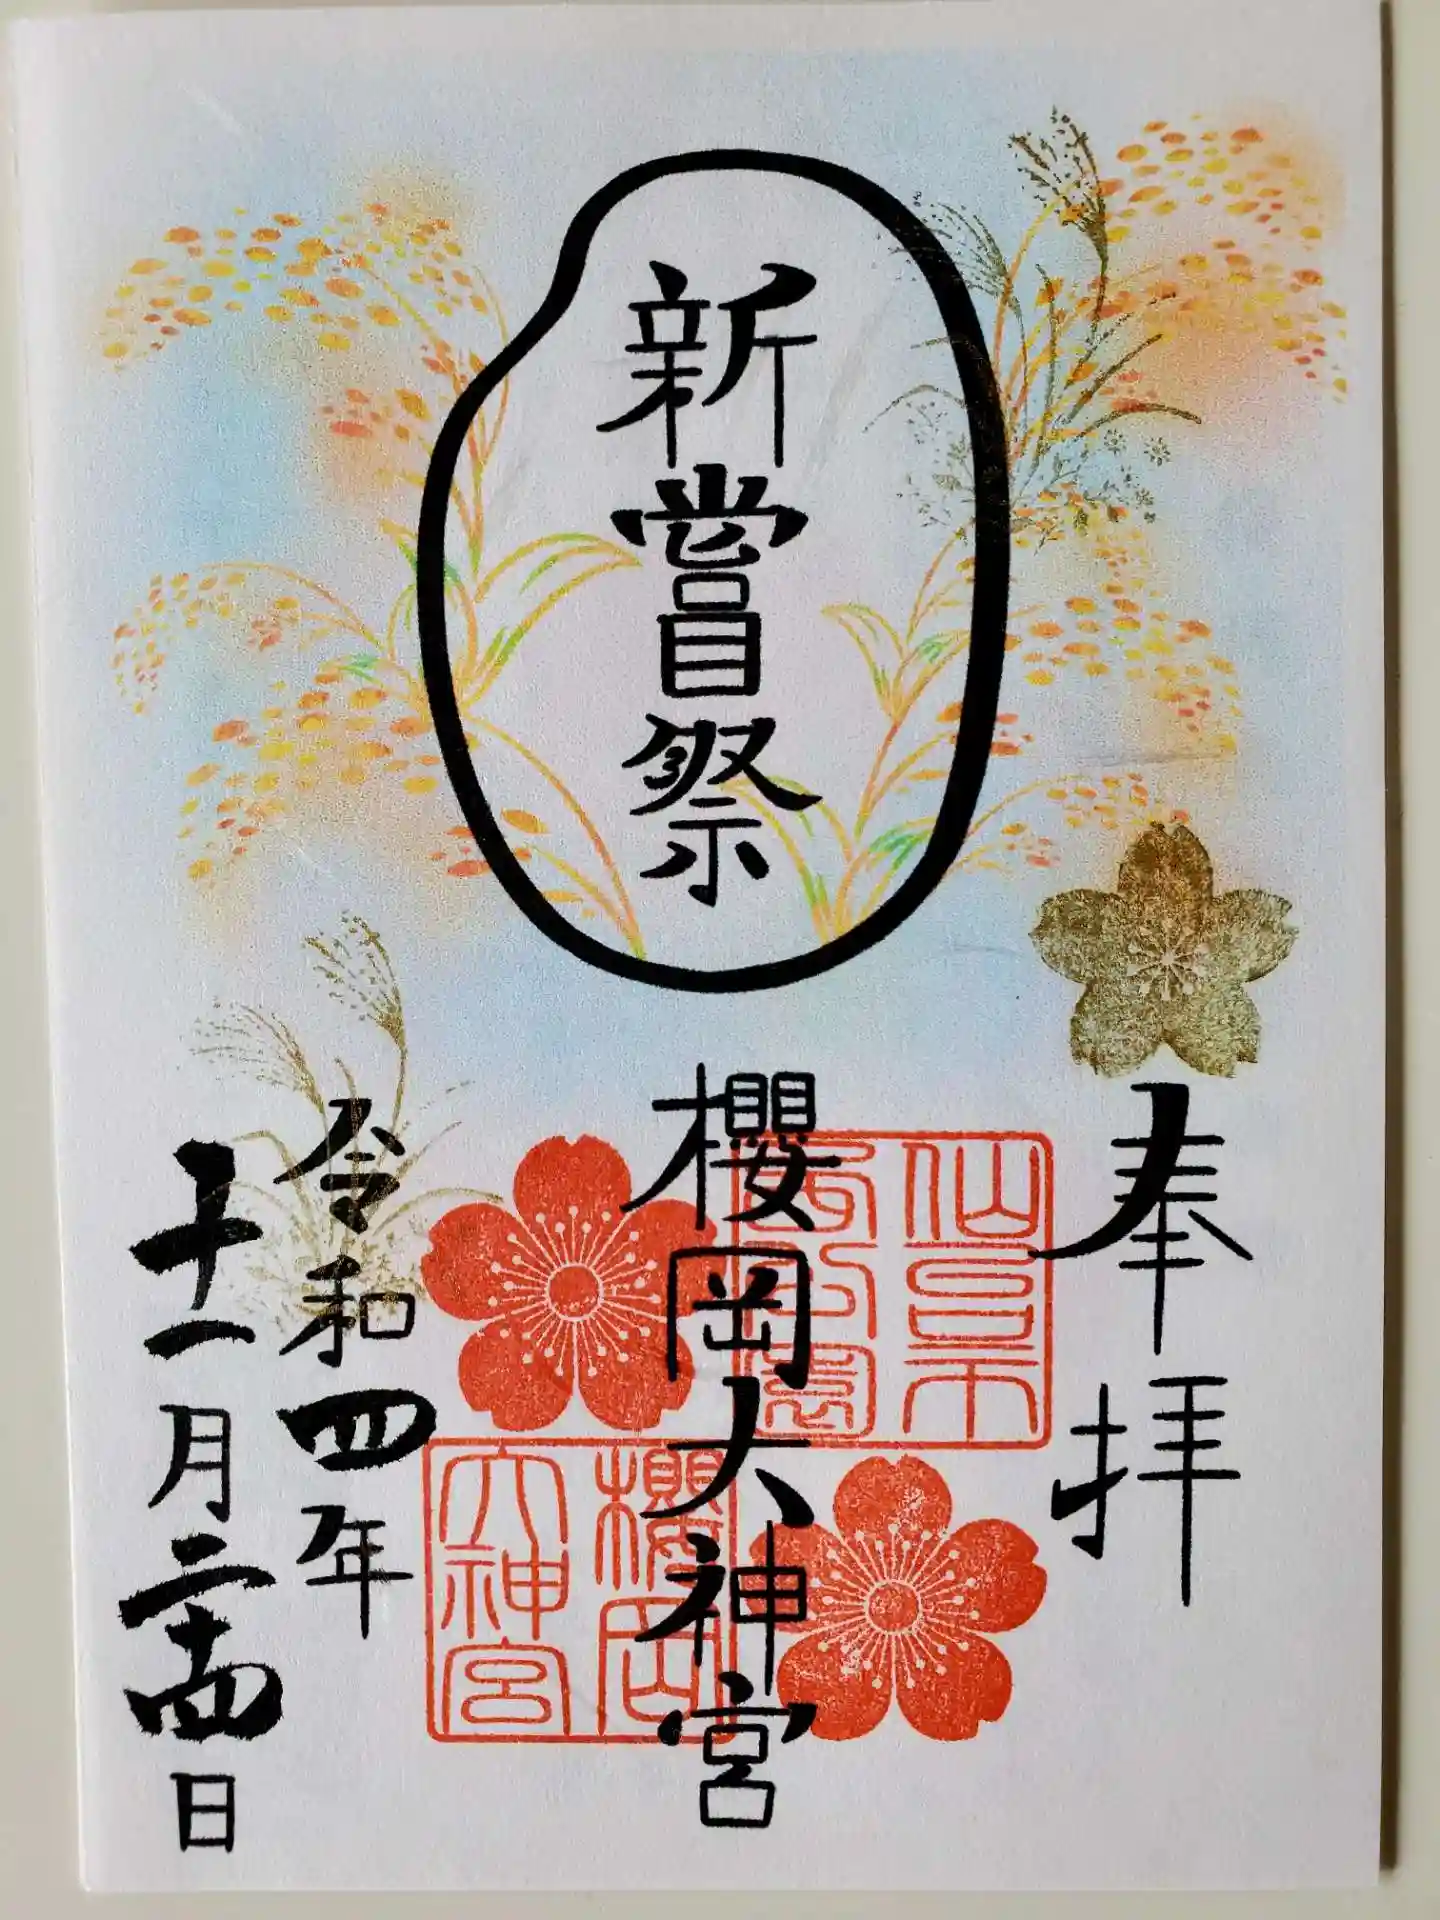 奉拝
新嘗祭
櫻岡大神宮
仙臺
西公園
櫻岡
大神宮
令和四年
十一月二十四日